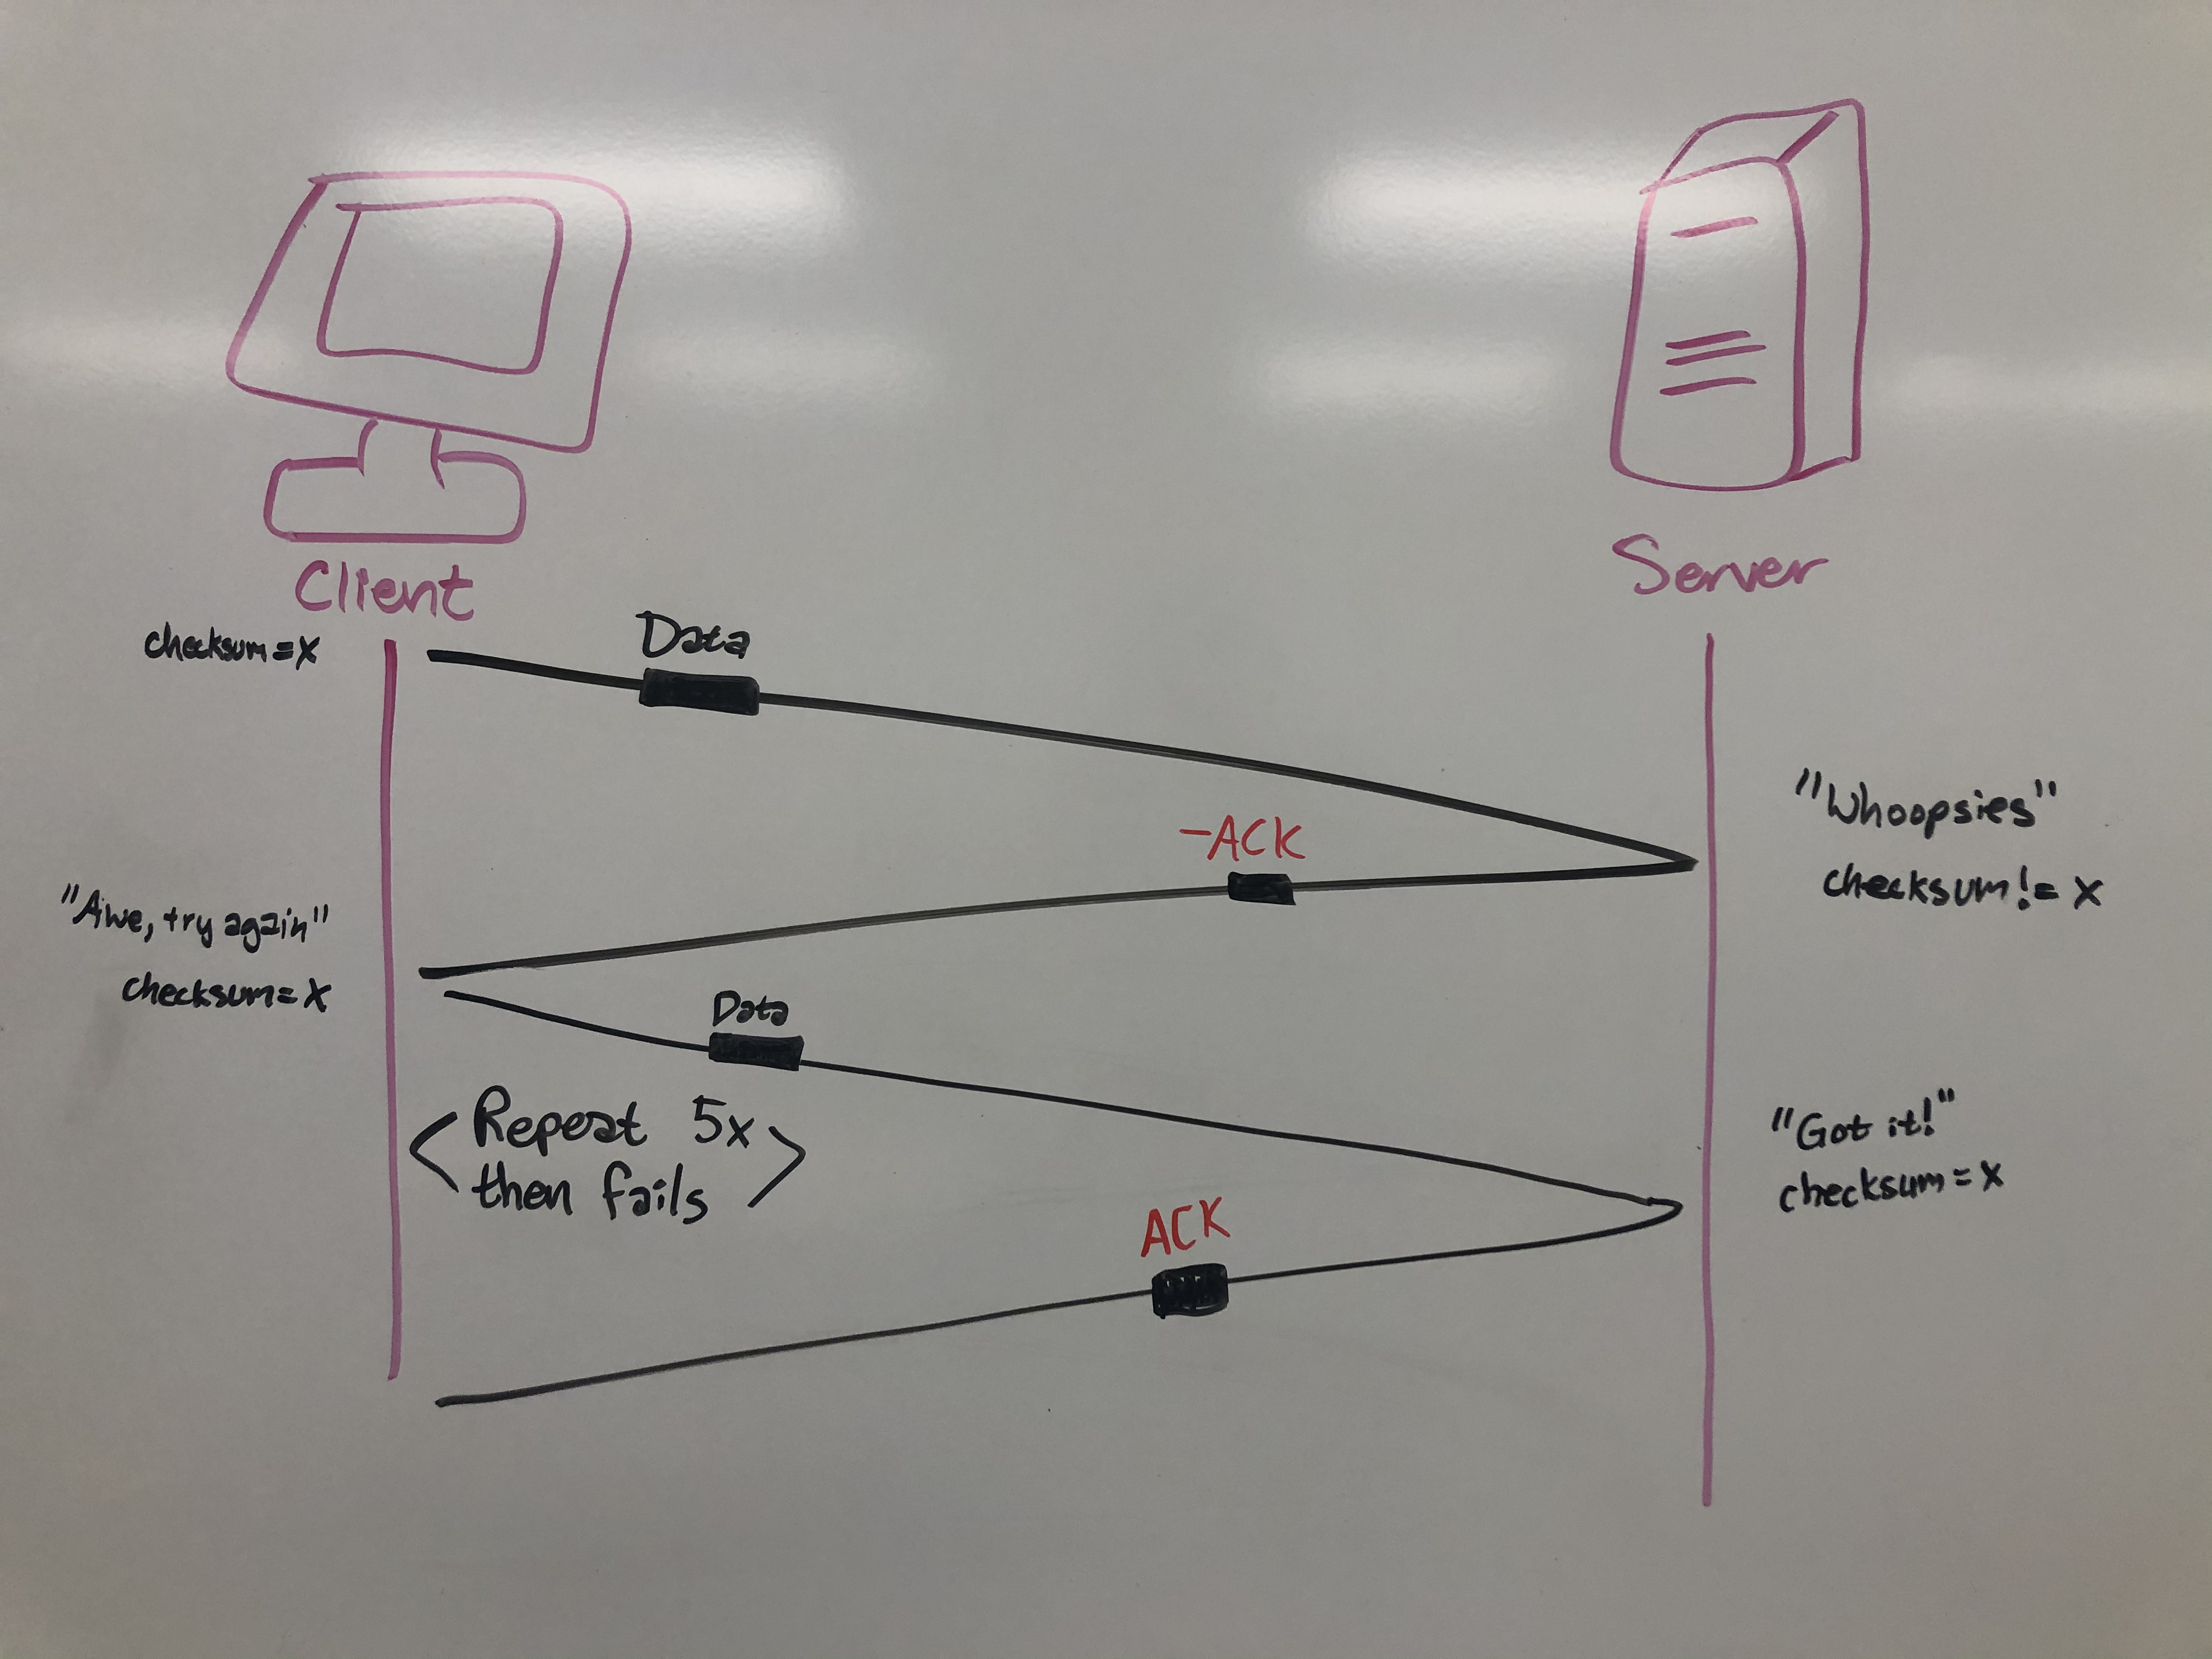 Client
Server
checksum=x
Data
"Whoopsies"
checksum!=x
-ACK
"Awe, try again"
checksum=x
Data
<Repeat 5x
then fails>
"Got it!"
checksum=x
ACK